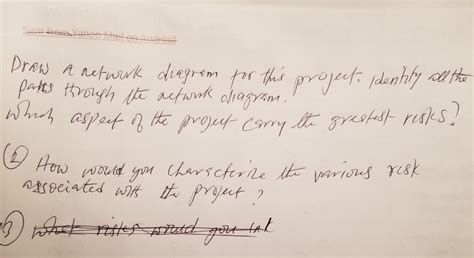 Sent from Yahoo Mail on Android
Draw a network diagram for this project. identify all the
paths through the network diagram.
which aspect of the project carry the greatest risks?
② How would you characterize the various risk
associated with the project?
③ what risks would you